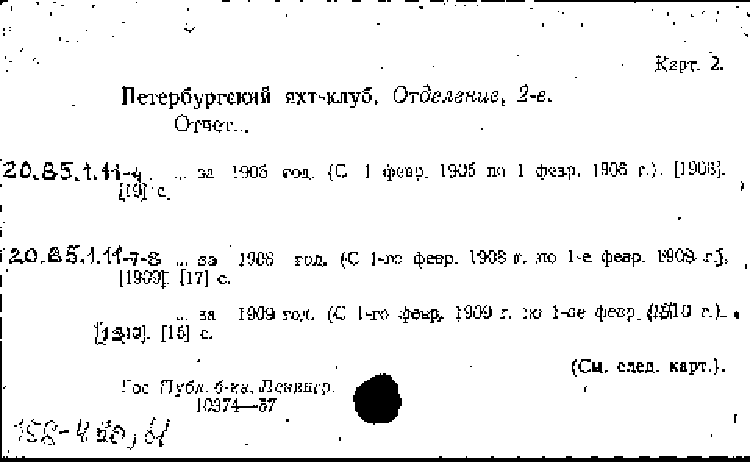 Карт. 2.
Петербургский яхт-клуб. Отделение, 2-е.
Отчет...
20.85.1.11-4 ... за 1905 год. (С 1 февр. 1905 по 1 февр. 1906 г.). [1906].
[19] с.
20.85.1.11-7-8 ... за 1908 год. (С 1-го февр. 1908 г. по 1-е февр. 1909 г.).
[1909]. [17] с.
... за 1909 год. (С 1-го февр. 1909 г. по 1-ое февр. 1910 г.).
[1910]. [16] с.
(См. след. карт.).
Гос. Публ. б-ка. Ленингр.
10374—57